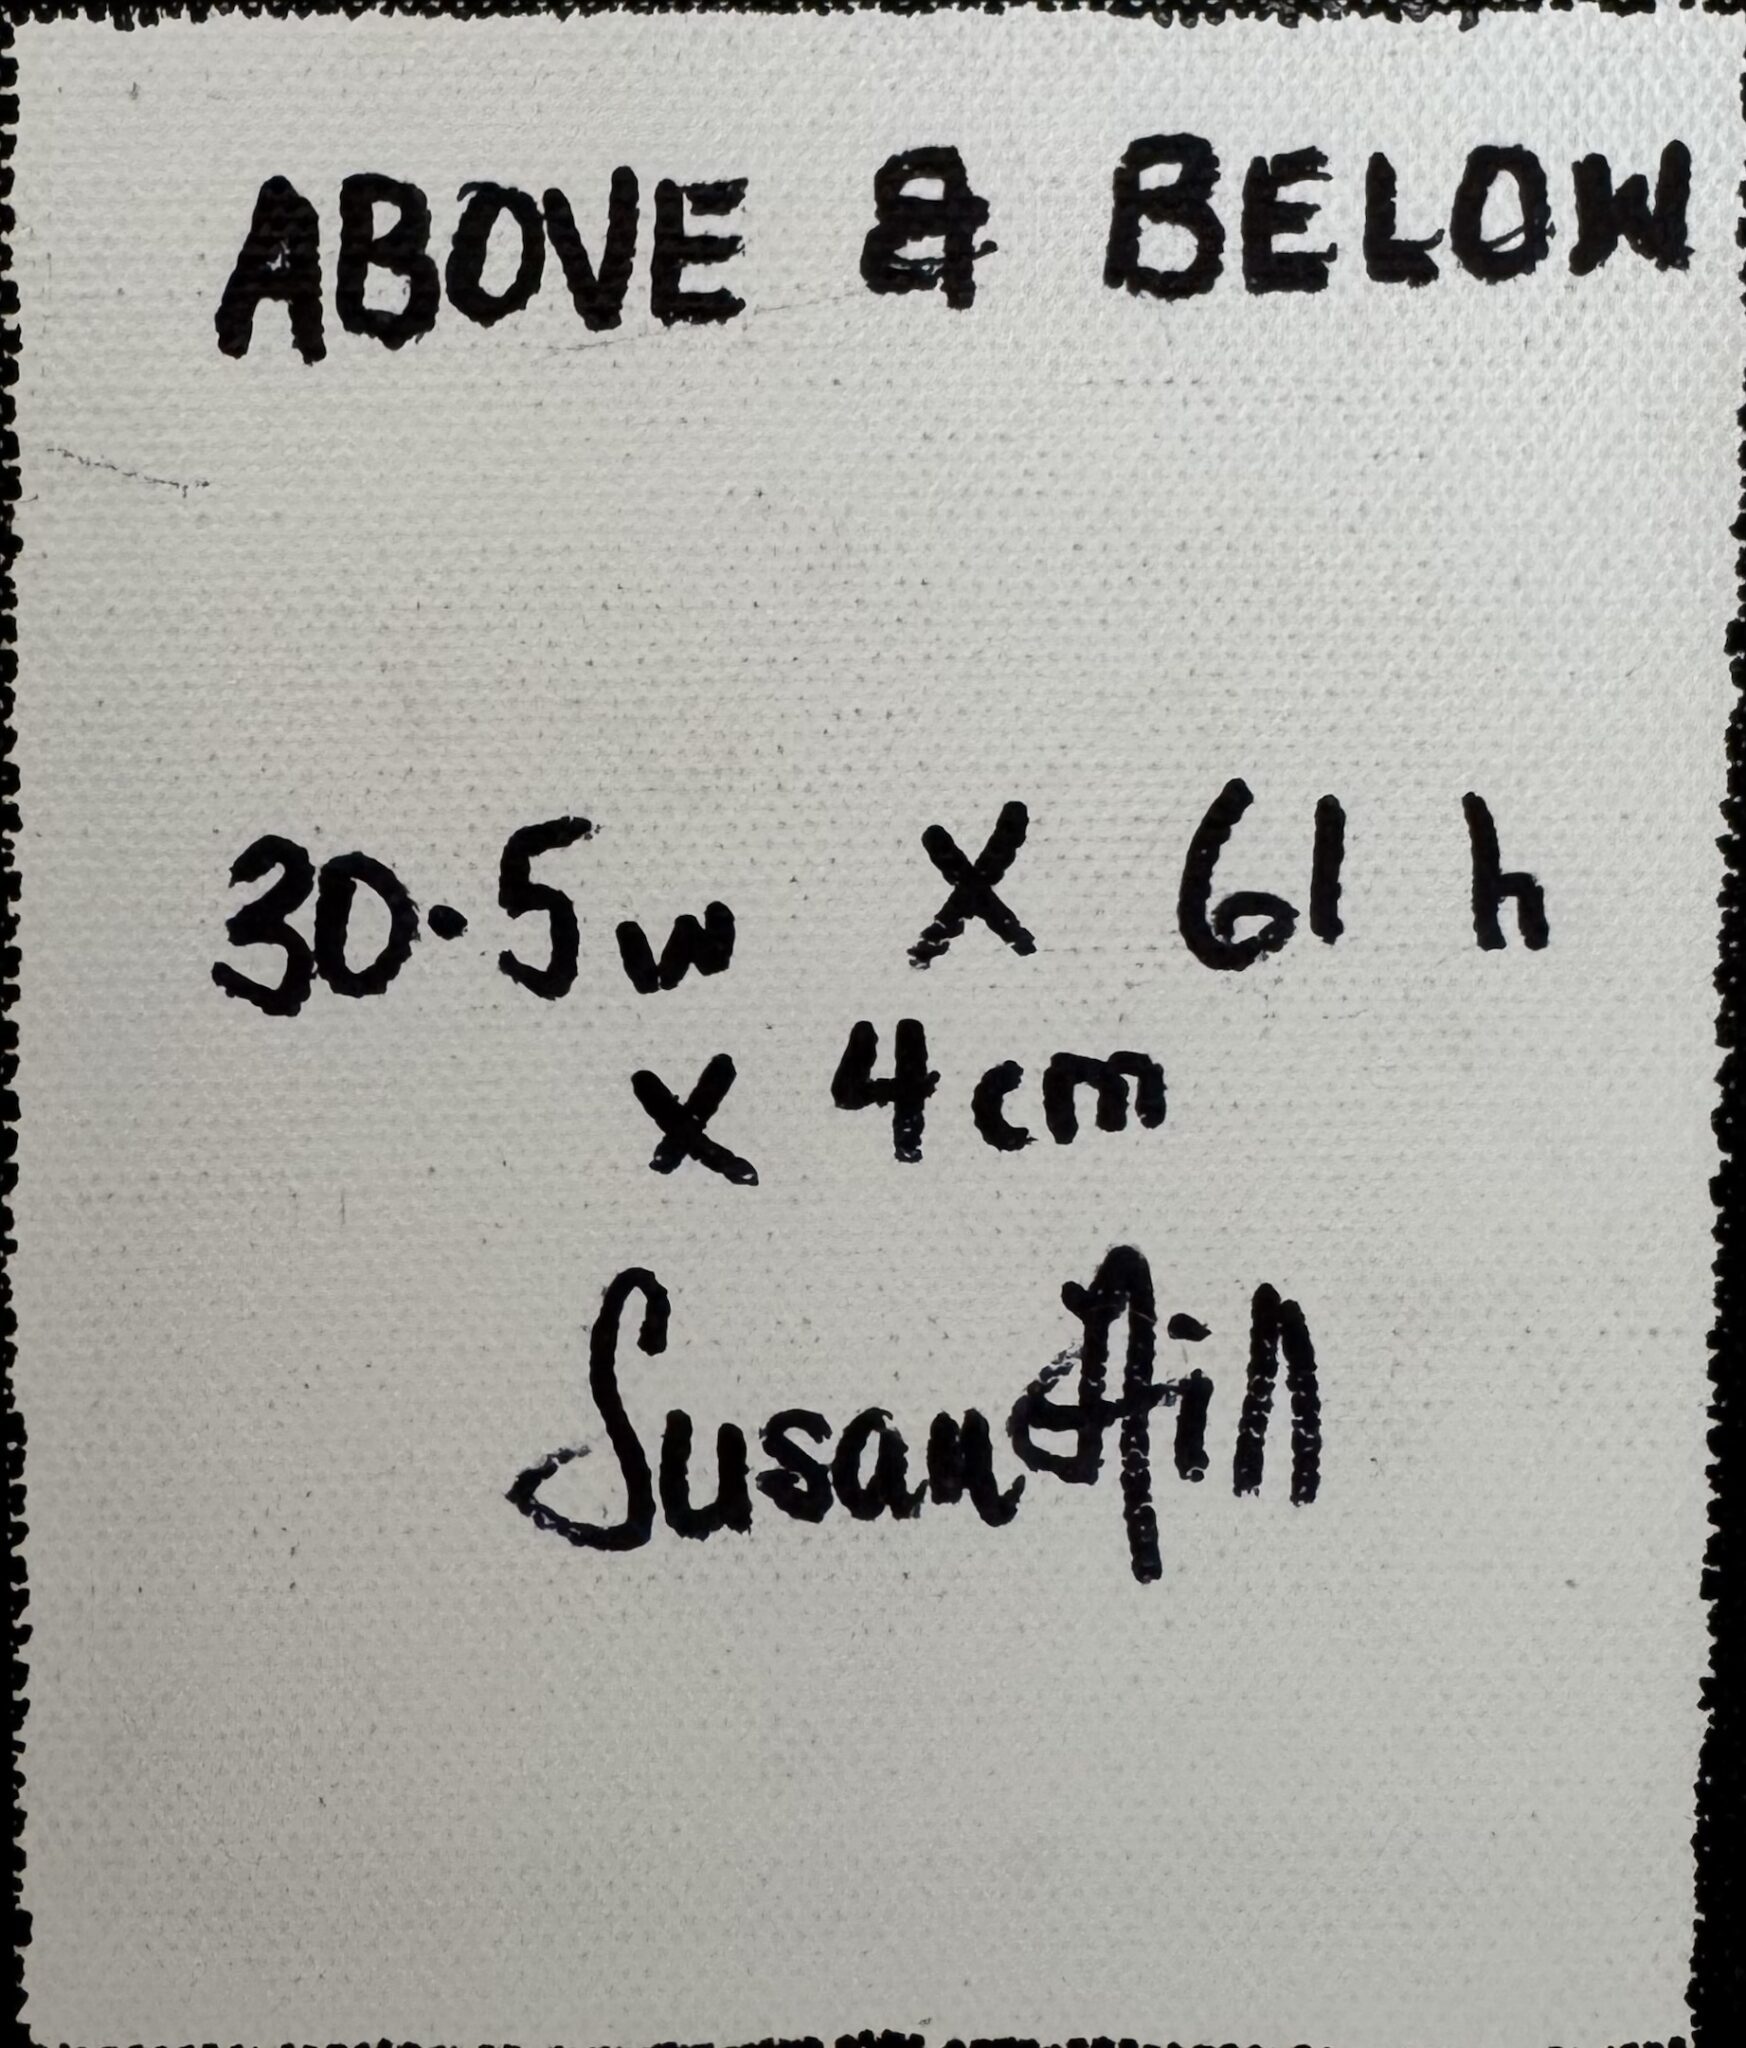 ABOVE & BELOW
30.5w x 61 h
x 4cm
Susan Hill